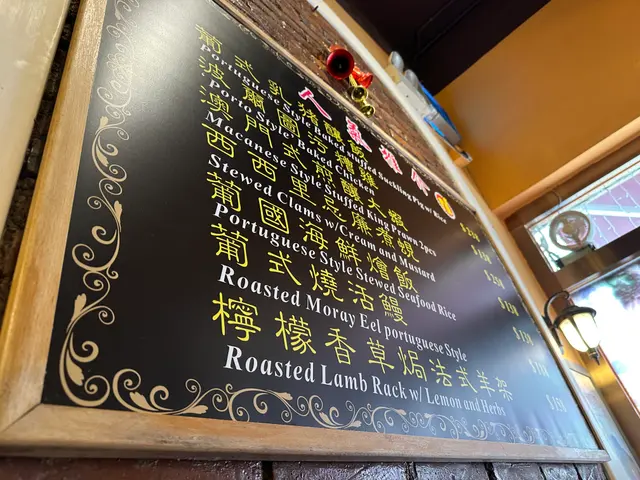 人氣推介
葡式乳豬釀飯
Portuguese Style Baked Stuffed Suckling Pig w/ Rice
Porto Style Baked Chicken
澳門式煎釀大蝦
Macanese Style Stuffed King Prawn 2pcs
西西里忌廉煮蜆
Stewed Clams w/Cream and Mustard
葡國海鮮燴飯
Portuguese Style Stewed Seafood Rice
葡式燒活鰻
Roasted Moray Eel portuguese Style
檸檬香草焗法式羊架
Roasted Lamb Rack w/ Lemon and Herbs